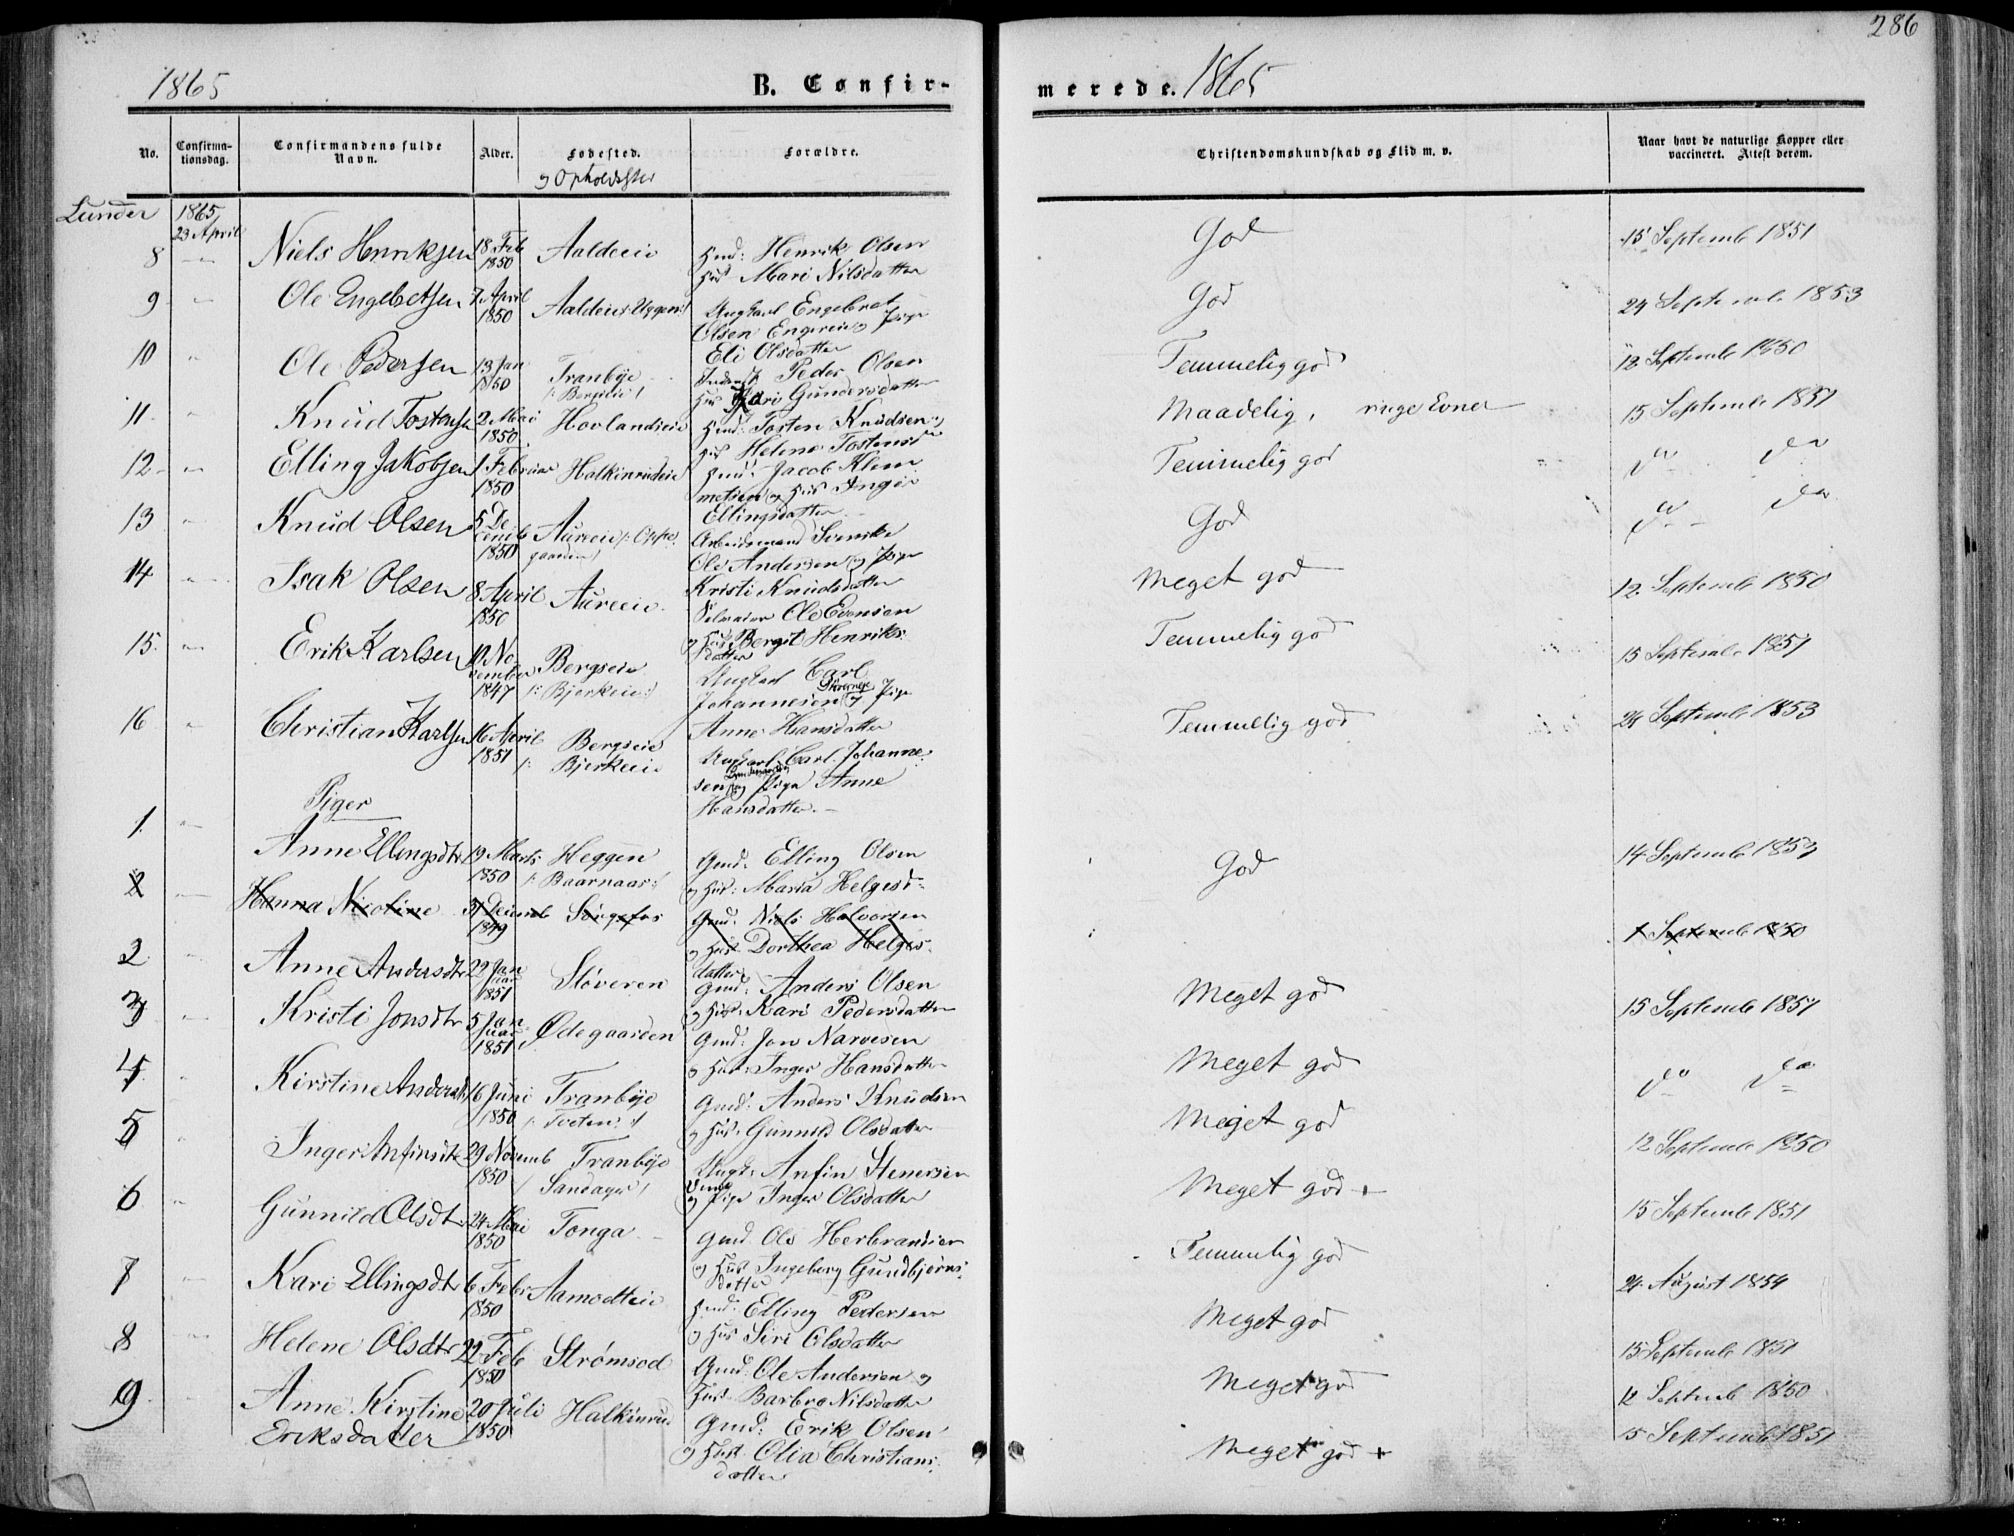 286
1865 B. Confir-
merede. 1865
No. Confirma-tionsdag. Confirmandens fulde Navn. Alder. Fødested. Forældre.
og Opholdssted
Christendomskundskab og Flid m. v. Naar havt de naturlige Kopper eller vaccineret. Attest derom.
Lunder 1865
23 April
8 Niels Henriksen 18 Feb 1850 Aaldeeie Hmd: Henrik Olsen
Hus Mari Nilsdatter
God 15 Septemb 1851
9 Ole Engebretsen 7 April 1850 Aaldeeie Ungkarl Engebret
Olsen og Pige
Eli Olsdatter
God 24 Septemb 1853
10 Ole Pedersen 13 Jan 1850 Tranbye Peder Olsen
Hus Kari Gundersdatter
Temmelig god 12 Septemb 1850
11 Knud Tostensen 2 Mai 1850 Hovlandseie Hmd: Tosten Knudsen og
Hus Helene Tostensd
Maadelig, ringe Evner 15 Septemb 1851
12 Elling Jakobsen 1 Februar 1850 Halkinrudeie Hmd: Jacob Klem
metsen og Hus Inger
Ellingsdatter
Temmelig god do do
13 Knud Olsen 5 De
cemb 1850 Aureeie (: Oppe
gaarden) Arbeidsmand Svenske
Ole Andersen og Pige
Kristi Knudsdatter
God do do
14 Isak Olsen 8 April 1850 Aureeie Selveier Ole Evensen
og Hus Bergit Henriks
datter
Meget god 12 Septemb 1850
15 Erik Karlsen 10 No
vember 1847 Bergseie
(: Bjerkeie :) Ungkarl Carl
Johannesen og Pige
Anne Hansdatter
Temmelig god 15 Septemb 1851
16 Christian Karlsen 16 April 1851 Bergseie
(: Bjerkeie Ungkarl Carl Johanne
sen og Pige Anne
Hansdatter
Temmelig god 24 Septemb 1853
Piger
1 Anne Ellingsdtr 19 Marts 1850 Heggen
(: Baarnaas :) Gmd: Elling Olsen
og Hus: Maria Helgesd
God 14 Septemb 1853
2 Hanna Nicoline 31 Decemb 1849 Sørgefos Gmd. Niels Halvorsen
og Hus Dorthea Helges
datter
1 Septemb 1850
2 Anne Andersdtr 22 Jan
uar 1851 Støveren Gmd: Anders Olsen
og Hus: Kari Pedersdatter
Meget god 15 Septemb 1851
3 Kristi Jonsdtr 5 Jan
uar 1851 Ødegaarden Gmd: Jon Narvesen
og Hus: Inger Hansdatter
Meget god do do
4 Kirstine Andersdtr 16 Juni 1850 Tranbye
(: Toeten :) Gmd: Anders Knudsen
og Hus: Gunnild Olsdatter
Meget god 12 Septemb 1850
5 Inger Anfinsdtr 29 Novemb 1850 Tranbye
(Sandager) Ungk: Anfin Stenersen
og Pige Inger Olsdatter
Meget god + 15 Septemb 1851
6 Gunnild Olsdtr 24 Mai 1850 Tonga Gmd. Ole Herbrandsen
og Hus Ingeborg Gundbjørns
datter
Temmelig god 24 August 1854
7 Kari Ellingsdtr 6 Febr 1850 Aamodteie Hmd: Elling Pedersen
og Hus Siri Olsdatter
Meget god 15 Septemb 1851
8 Helene Olsdtr 22 Feb 1850 Strømsod Gmd: Ole Andersen og
Hus Barbro Nilsdatter
Meget god 12 Septemb 1850
9 Anne Kirstine
Eriksdatter 20 Juli 1850 Halkinrud Gmd: Erik Olsen
og Hust. Olea Christians
datter
Meget god + 15 Septemb 1851